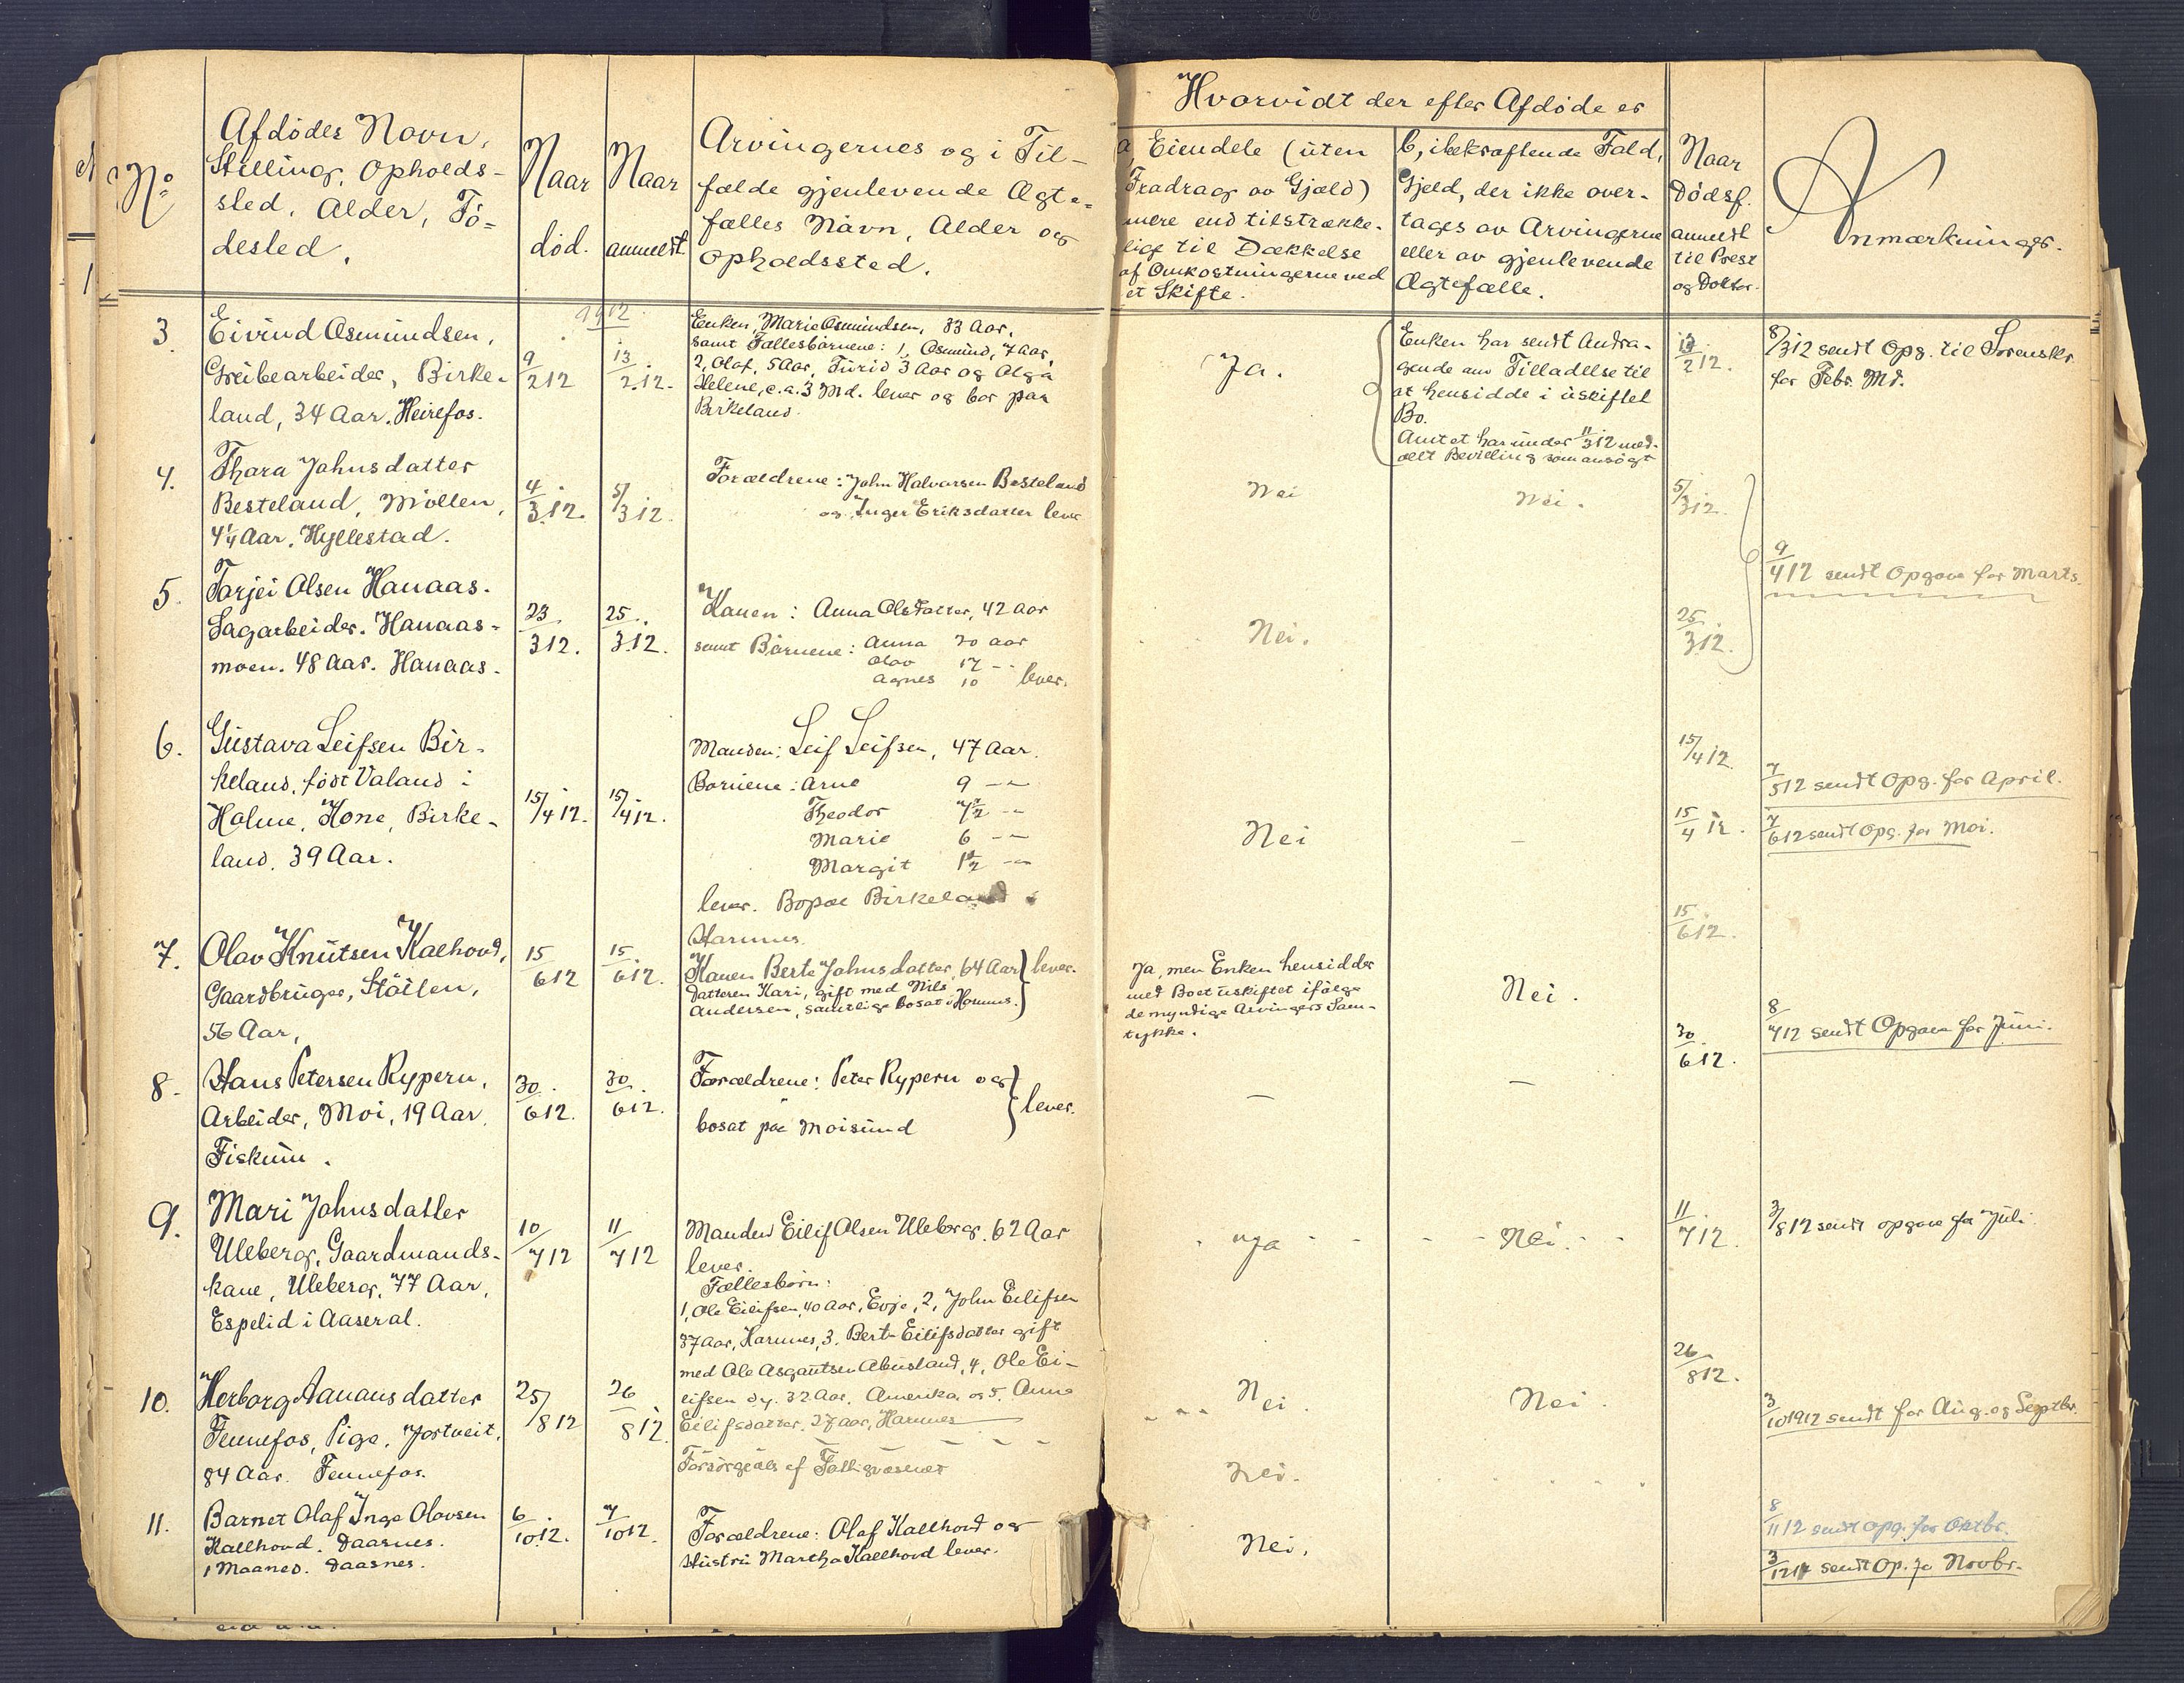 No
Afdödes Navn,
Stilling, Opholds-
sted, Alder, Fö-
desled.
Naar
död.
Naar
anmeldt.
Arvingernes og i Til-
fælde gjenlevende Ægte-
fælles Navn, Alder og
Opholdssted.
Hvorvidt der efter Afdöde er
a, Eiendele (uten
Fradrag av Gjæld)
mere end tilstrække-
lige til Dækkelse
af Omkostningerne ved
et Skifte.
b, i bekræftende Fald,
Gjeld, der ikke over-
tages av Arvingerne
eller av gjenlevende
Ægtefælle.
Naar
Dödsf.
anmeldt
til Prest
og Doktor.
Anmærkninger.
1912
3.
Eivind Osmundsen,
Greibearbeider, Birke-
land, 34 Aar. Heirefos.
9/2 12
13/2 12.
Enken, Marie Osmundsen, 33 Aar,
samt Fællesbörnene: 1, Osmund, 7 Aar,
2, Olaf, 5 Aar, Turid 3 Aar og Olga
Helene, c.a. 3 Md. lever og bor paa
Birkeland.
Ja.
Enken har sendt Andra-
gende om Tilladelse til
at hensidde i uskiftet
Bo.
Amtet har under 11/3 12 med-
delt Bevilling som ansögt
13/2 12.
8/3 12 sendt Opg. til Sorenskr.
for Febr. Md.
4.
Thara Johnsdatter
Besteland, Möllen,
4 1/4 Aar. Hyllestad.
4/3 12.
5/3 12.
Forældrene: John Halvorsen Besteland
og Inger Eriksdatter lever
Nei
Nei.
5/3 12.
9/4 12 sendt Opgave for Marts.
5.
Tarjei Olsen Hanaas.
Sagarbeider. Hanaas-
moen. 48 Aar. Hanaas.
23/3 12.
25/3 12.
Konen: Anna Olsdatter, 42 Aar
samt Börnene: Anna 20 aar
Olav 17 -"-
Agnes 10 lever.
Nei.
25/3 12.
6.
Gustava Leifsen Bir-
keland, født Valand i
Holme, Kone, Birke-
land. 39 Aar.
15/4 12.
15/4 12.
Manden: Leif Leifsen, 47 Aar.
Börnene: Arne 9 -"-
Theodor 7 1/2 -"-
Marie 6 -"-
Margit 1 1/2 -"-
lever. Bopæl Birkeland i
Hornnes.
Nei
-
15/4 12
15/4 12.
7/5 12 sendt Opg. for April.
7/6 12 sendt Opg. for Mai.
7.
Olav Knutsen Kalhovd,
Gaardbruger, Stöilen,
56 Aar,
15/6 12
15/6 12.
Konen Berte Johnsdatter, 64 Aar
Datteren Kari, gift med Nils
Andersen, samtlige bosat i Hornnes.
lever.
Ja, men Enken hensidder
med Boet uskiftet ifölge
de myndige Arvingers Sam-
tykke.
Nei.
15/6 12.
8/7 12 sendt Opgave for Juni.
8.
Hans Petersen Rypern,
Arbeider, Moi, 19 Aar.
Fiskum.
30/6 12.
30/6 12.
Forældrene: Peter Rypern og
bosat paa Moisund
lever.
-
-
30/6 12.
9.
Mari Johnsdatter
Uleberg, Gaardmands-
kone, Uleberg, 77 Aar,
Espelid i Aaseral.
10/7 12
11/7 12
Manden Eilif Olsen Uleberg. 62 Aar
lever.
Fællesbörn:
1, Ole Eilifsen, 40 Aar, Evje, 2, John Eilifsen
37 Aar, Hornnes, 3. Berte Eilifsdatter gift
med Ole Asgautsen Abusland, 4, Ole Ei-
lifsen d.y. 32 Aar, Amerika og 5. Anna
Eilifsdatter, 27 aar, Hornnes
Ja
Nei.
11/7 12.
3/8 12 sendt opgave for Juli.
10.
Herborg Aanansdatter
Fennefos, Pige, Jortveit,
84 Aar. Fennefos.
25/8 12
26/8 12.
Forsörgedes af Fattigvæsenet
Nei.
Nei.
26/8 12.
3/10 1912 sendt for Aug. og Septbr.
Nei.
11.
Barnet Olaf Inge Olavsen
Kallhovd. Daasnes.
1 Maaned. Daasnes.
6/10 12.
7/10 12.
Forældrene: Olaf Kallhovd og
Hustru Martha Kallhovd lever.
Nei.
8/11 12 sendt Opg. for Oktbr.
3/12 12 sendt Op. for Novbr.